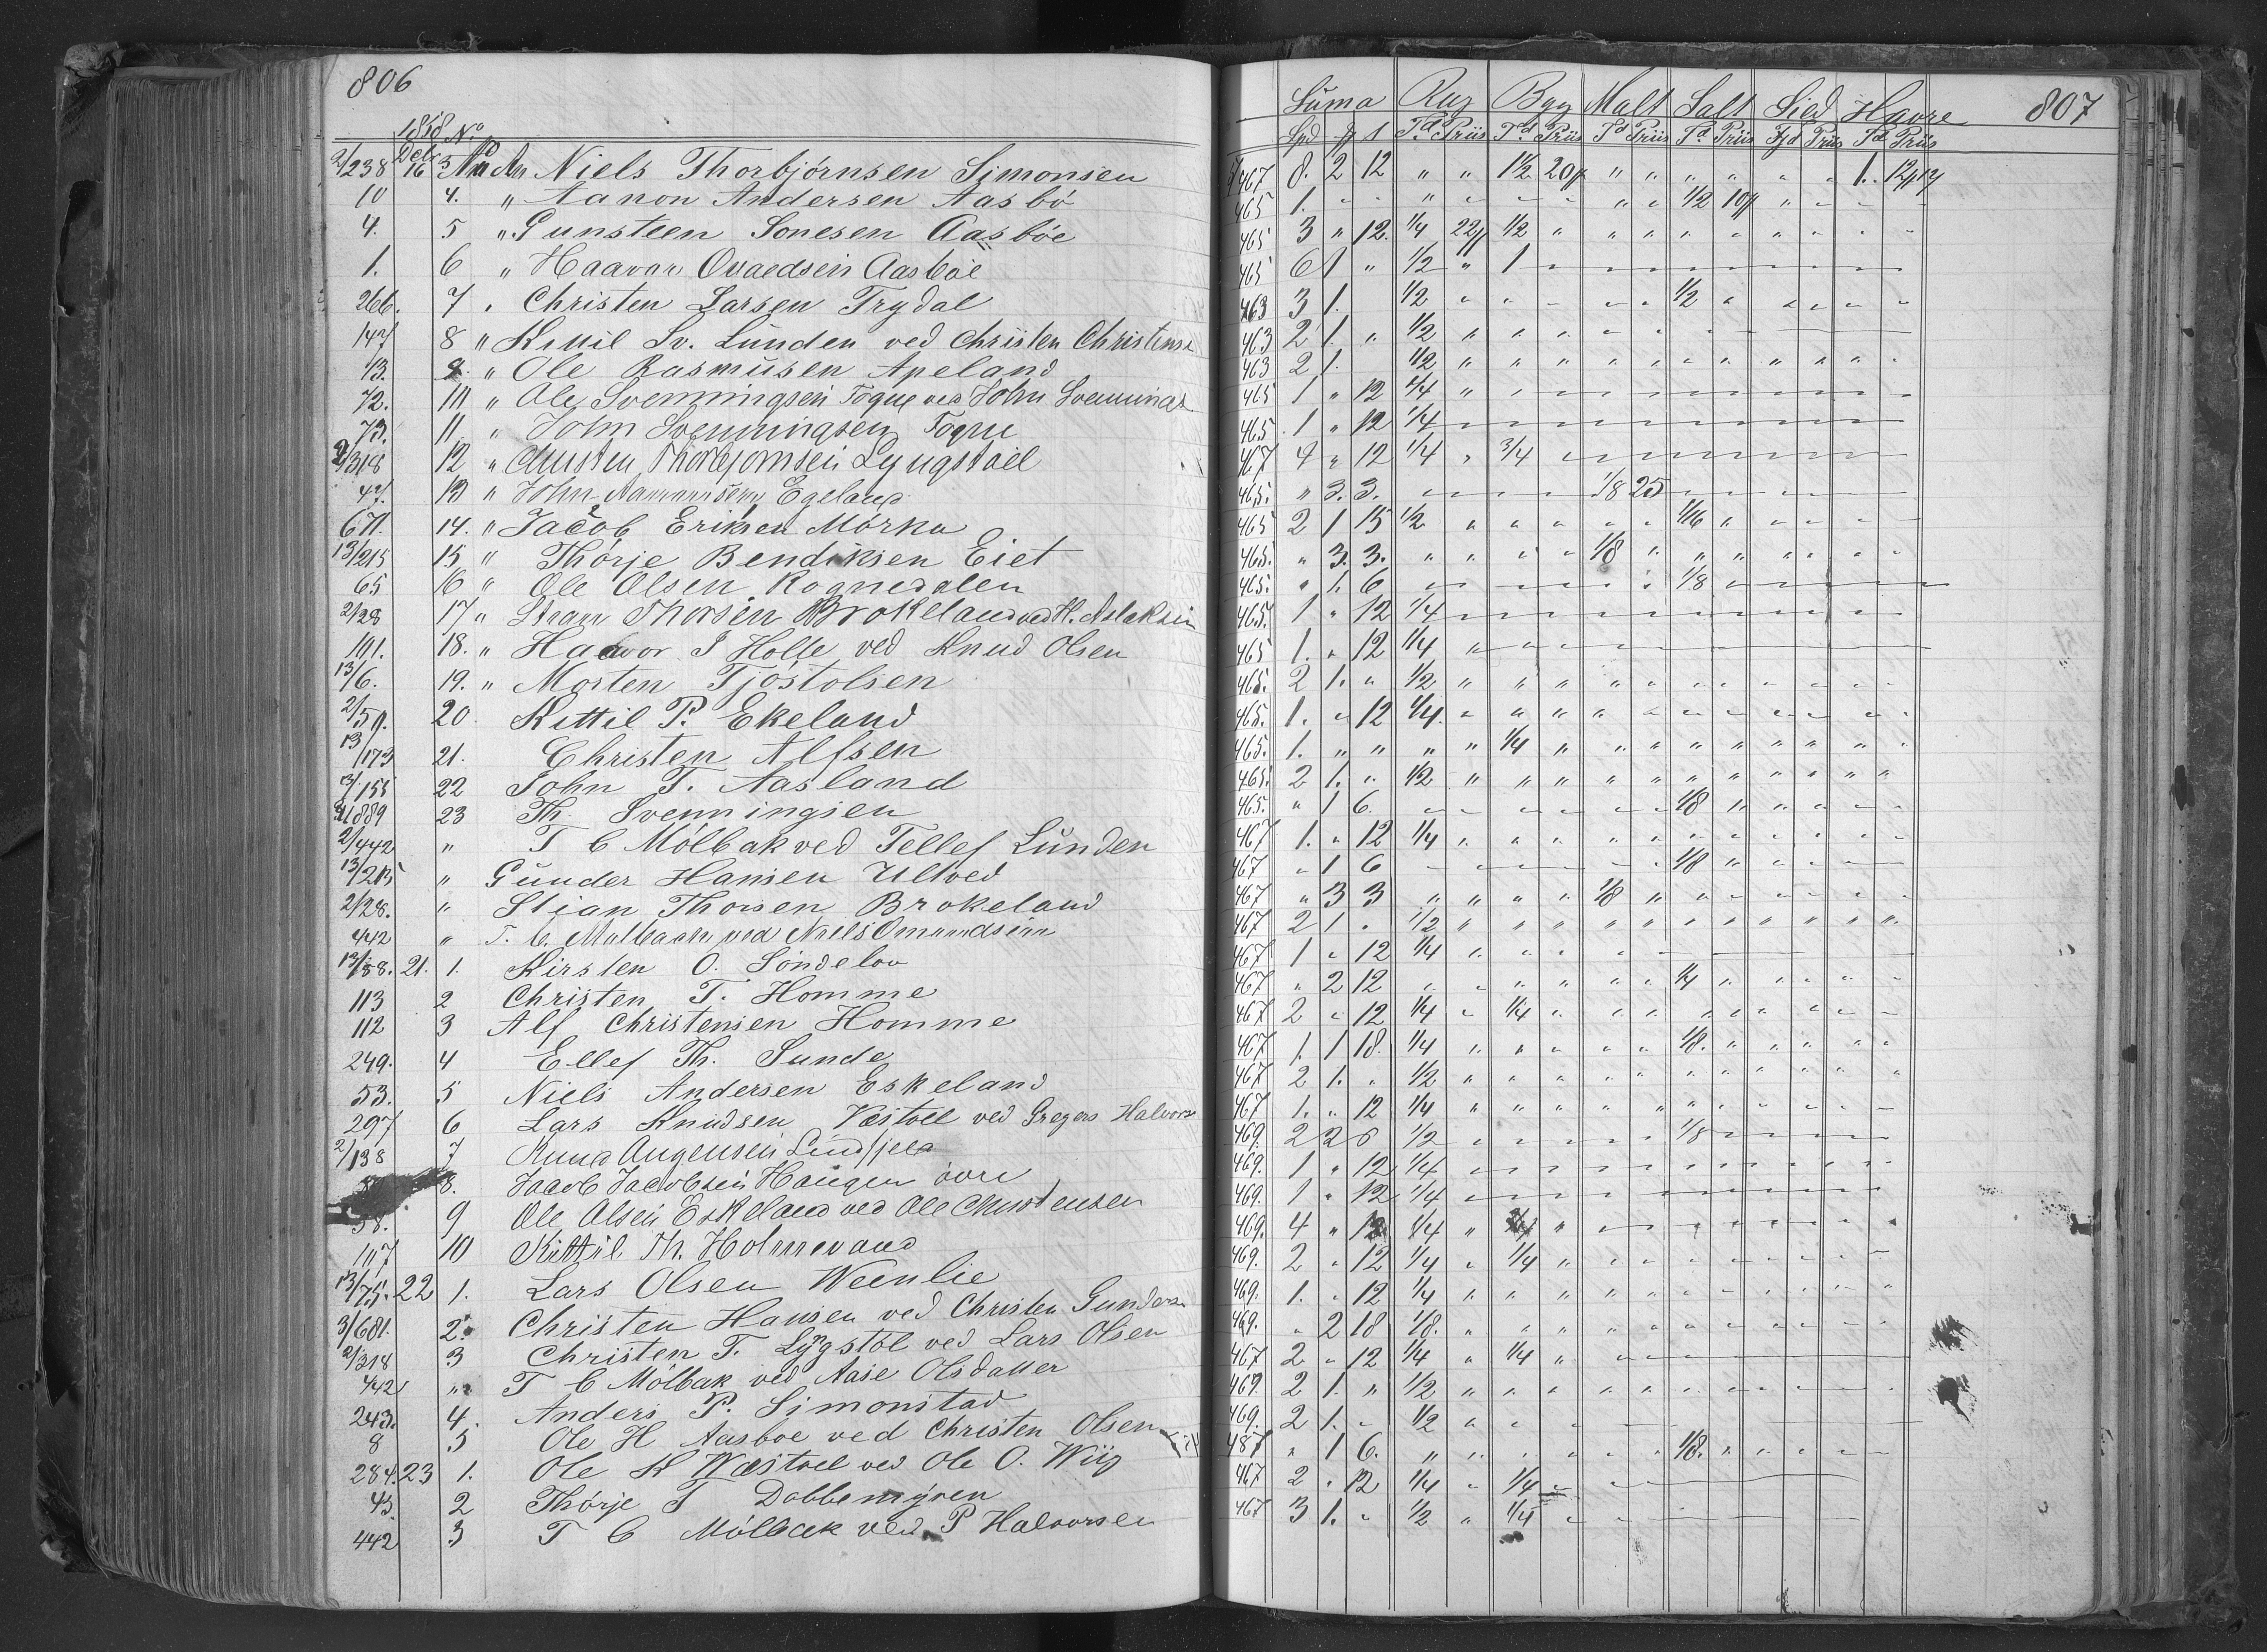 806
1858 No
Dec
2/238 16 3 An Niels Thorbjørnsen Simonsen
10 4. " Aanon Andersen Aasbö
4. 5 " Gunsteen Sonesen Aasböe
1. 6 " Haavor Aasböe
266. 7 " Christen Larsen Trydal
147 8 " Sv. Lunden ved Christen Christens
13. 9. " Ole Rasmusen Apeland
72. 10 " Ole Svenningsen ved John Svennings
73. 11 " John Svenningsen
2/318 12 " Christen Thorbjornsen Lyngstöel
47. 13 " John Egeland
671. 14. " Jacob Eriksen Mörka
13/215 15 " Thörje Bendiksen Eiet
65 16 " Ole Olsen Rognedalen
2/28 17 " Thorsen Brokeland ved H. Aslaksen
191. 18. " Haavor J Holte ved Knud Olsen
13/6. 19. " Morten Tjöstolsen
2/59. 20. Kettil P. Ekeland
13/173 21. Christen Alfsen
13/155 22 John T. Aasland
889 23 Th. Svenningsen
2/442 " T C Mölbak ved Tellef Lunden
13/215 " Gunder Hansen Ulved
2/28. " Stian Thorsen Brokeland
442 " T. C. Mølbach ved Niels Omundsen
13/188. 21. 1. Kirsten O. Söndelov
113 2 Christen T. Homme
112 3 Alf Christensen Homme
249. 4 Ellef Th. Sunde
53. 5 Niels Andersen Eskeland
297 6 Lars Knudsen Vestöel ved Gregers Halvors
2/138 7 Knud Augensen Lindfjeld
8. Jacob Jacobsen Haugen övre
58. 9 Ole Olsen Eskeland ved Ole Christensen
107 10 Kittil Th. Holmevand
13/75. 22 1. Lars Olsen Weenlie
3/681. 2. Christen Hansen ved Christen Gunders
2/318 3 Christen T. Lygstöl ved Lars Olsen
442 " T C Mölbak ved Aase Olsdatter
243. 4. Anders P. Simonstad
8 5 Ole H Aasboe ved Christen Olsen
284. 23 1. Ole K Wæstöel ved Ole O. Wiig
43 2 Thörje T Dobbemyren
442 3 T C Mölbak ved P Halvorsen
807
Suma Rug Byg Malt Salt Sied Havre
Spd Td Priis Td Priis Td Priis Td Priis Priis Td Priis
467 8. 2 12 " " 1½ 20 " " " " " " 1. 12
465 1. " " " " " " " " ½ 10 " " " "
465 3 " 12. ¼ 22 ½ " " " " " " " " "
465 6 1 " ½ " 1 " " " " " " " " "
463 3 1. ½ " " " " " ½ " " " " "
463 2 1. " ½ " " " " " " "
463 2 1. ½ " " " " " " " " " " "
465 1 " 12 ¼ " " " " " " " " " " "
465. 1 " 12 ¼ " " " " " " " " " " "
467 4 " 12 ¼ " ¾ " " " " " " " " "
465. " 3. 3. " " " " 1/8 25 " " " " " "
465 2 1 15 ½ " " " " " 1/16 " " " " "
465. " 3. 3. " " " " 1/8 " " " " " " "
465. " 1. 6 " " " " " " 1/8 " " " " "
465. 1 " 12 ¼ " " " " " " " " " " "
465 1. " 12 ¼ " " " "
465. 2 1. " ½ " " " " " " " " " " "
465. 1. " 12 ¼. " " " " " " " " " " "
465. 1. " " " " ¼ " " " " " " " " "
465. 2 1. " ½ " " " " " " " " " " "
465. " 1 6. " " " " " " 1/8 " " " " "
467 1. " 12 ¼ " " " " " " " " " " "
467 " 1 6 " " " " " " 1/8 " " " "
467 " 3 3 " " " " 1/8 " " " " " " "
467 2 1 " ½ " " " " " " " " " " "
467 1 " 12 ¼ " " " " "
467 " 2 12 " " " " " " ¼ " " " " "
467 2 " 12 ¼ " ¼ " " " " " " " " "
467 1. 1 18. ¼ " " " " " 1/8. " " " " "
467 2 1. " ½ " " " " " " " " " " "
467 1. " 12 ¼ " " " " " " " " " " "
469. 2 2 6 ½ " " " " " 1/8 " " " " "
469. 1 " 12 ¼ " " " " " " " " " " "
469. 1 " 12 ¼ " " " " " " " " " " "
469. 4 " 12 ¼ " " " " " " " " " "
469. 2 " 12 ¼ " ¼ " " " " " " " " "
469. 1. " 12 ¼ " " " " " " " " " " "
469. " 2 18 1/8. " " " " " " " " " " "
467 2 " 12 ¼ " ¼ " " "
467. 2 1. " ½ " " " " " " " " " " "
469. 2 1. " ½ " " "
487 " 1 6. " " " " " " 1/8. " " " " "
467 2 " 12 ¼ " ¼ " " "
467 3 1. " ½ " ¼ " " "